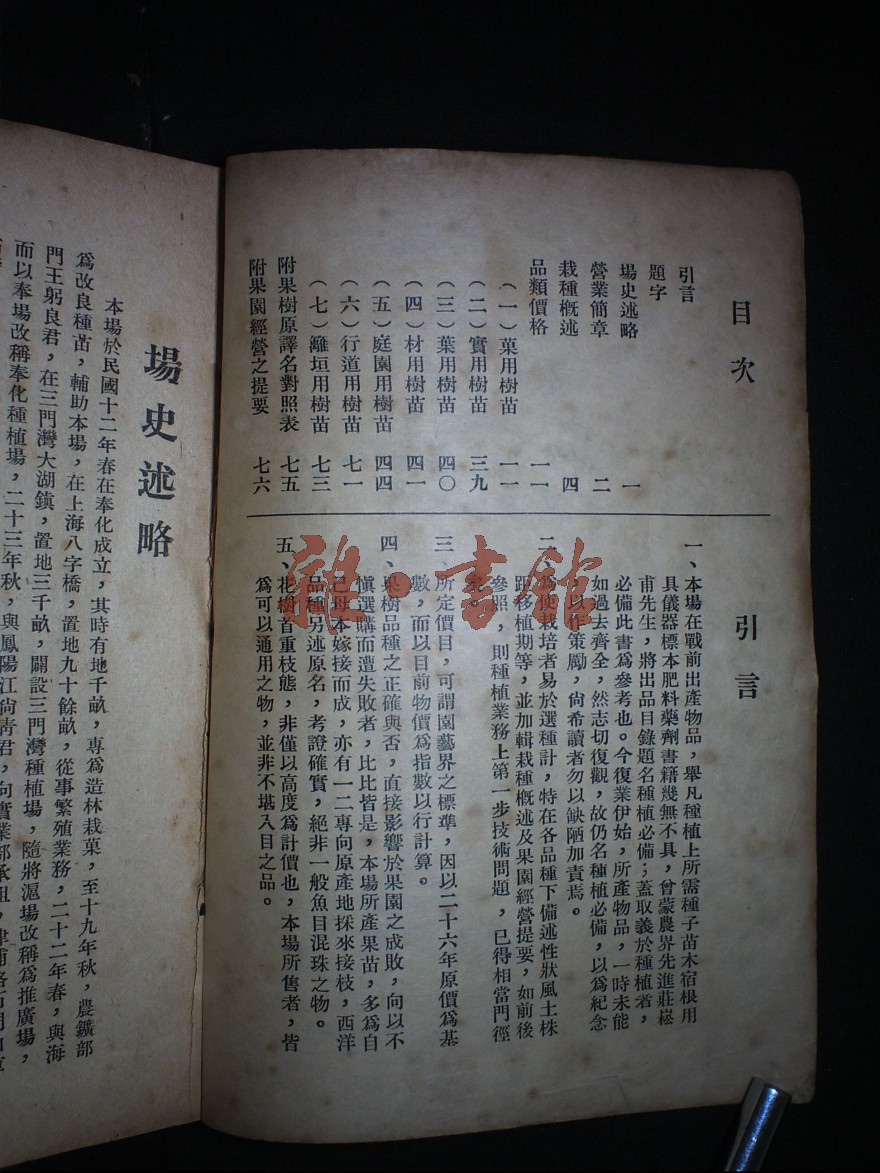 目次
引言
題字
場史述略 一
營業簡章 二
栽種概述 四
品類價格 一一
(一)菓用樹苗 一一
(二)實用樹苗 三九
(三)葉用樹苗 四〇
(四)材用樹苗 四一
(五)庭園用樹苗 四四
(六)行道用樹苗 七一
(七)籬垣用樹苗 七三
附果樹原譯名對照表 七五
附果園經營之提要 七六
引言
一、本場在戰前出產物品,舉凡種植上所需種子苗木宿根用
具儀器標本肥料藥劑書籍幾無不具,曾蒙農界先進莊崧
甫先生,將出品目錄題名種植必備;蓋取義於種植者,
必備此書爲參考也。今復業伊始,所產物品,一時未能
如過去齊全,然志切復觀,故仍名種植必備,以爲紀念
,以作策勵,尙希讀者勿以缺陋加責焉。
二、爲使栽培者易於選種計,特在各品種下備述性狀風土株
距移植期等,並加輯栽種概述及果園經營提要,如前後
參照,則種植業務上第一步技術問題,已得相當門徑
矣。
三、所定價目,可謂園藝界之標準,因以二十六年原價爲基
數,而以目前物價爲指數以行計算。
四、果樹品種之正確與否,直接影響於果園之成敗,向以不
愼選購而遭失敗者,比比皆是,本場所產果苗,多爲自
己母本嫁接而成,亦有一二專向原產地採來接枝,西洋
品種另述原名,考證確實,絕非一般魚目混珠之物。
五、花樹首重枝態,非僅以高度爲計價也,本場所售者,皆
爲可以通用之物,並非不堪入目之品。
場史述略
本場於民國十二年春在奉化成立,其時有地千畝,專爲造林栽菓,至十九年秋,農鑛部
爲改良種苗,輔助本場,在上海八字橋,置地九十餘畝,從事繁殖業務,二十二年春,與海
門王躬良君,在三門灣大湖鎮,置地三千畝,闢設三門灣種植場,隨將滬場改稱爲推廣場,
而以奉場改稱奉化種植場,二十三年秋,與鳳陽江尙靑君,向實業部承租,津浦路
龍・書館